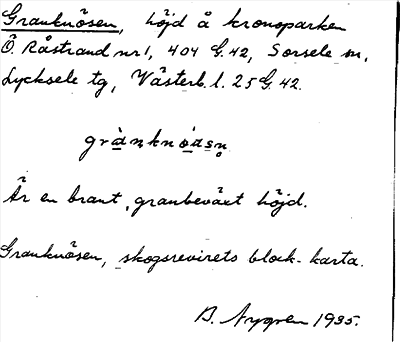 Granknösen, höjd å kronoparken
Ö Råstrand nr 1, 404 G. 42, Sorsele sn,
Lycksele tg, Västerb. l. 25 G. 42.
Är en brant, granbeväxt höjd.
Granknösen, skogsrevirets block-karta.
B. Nygren 1935.